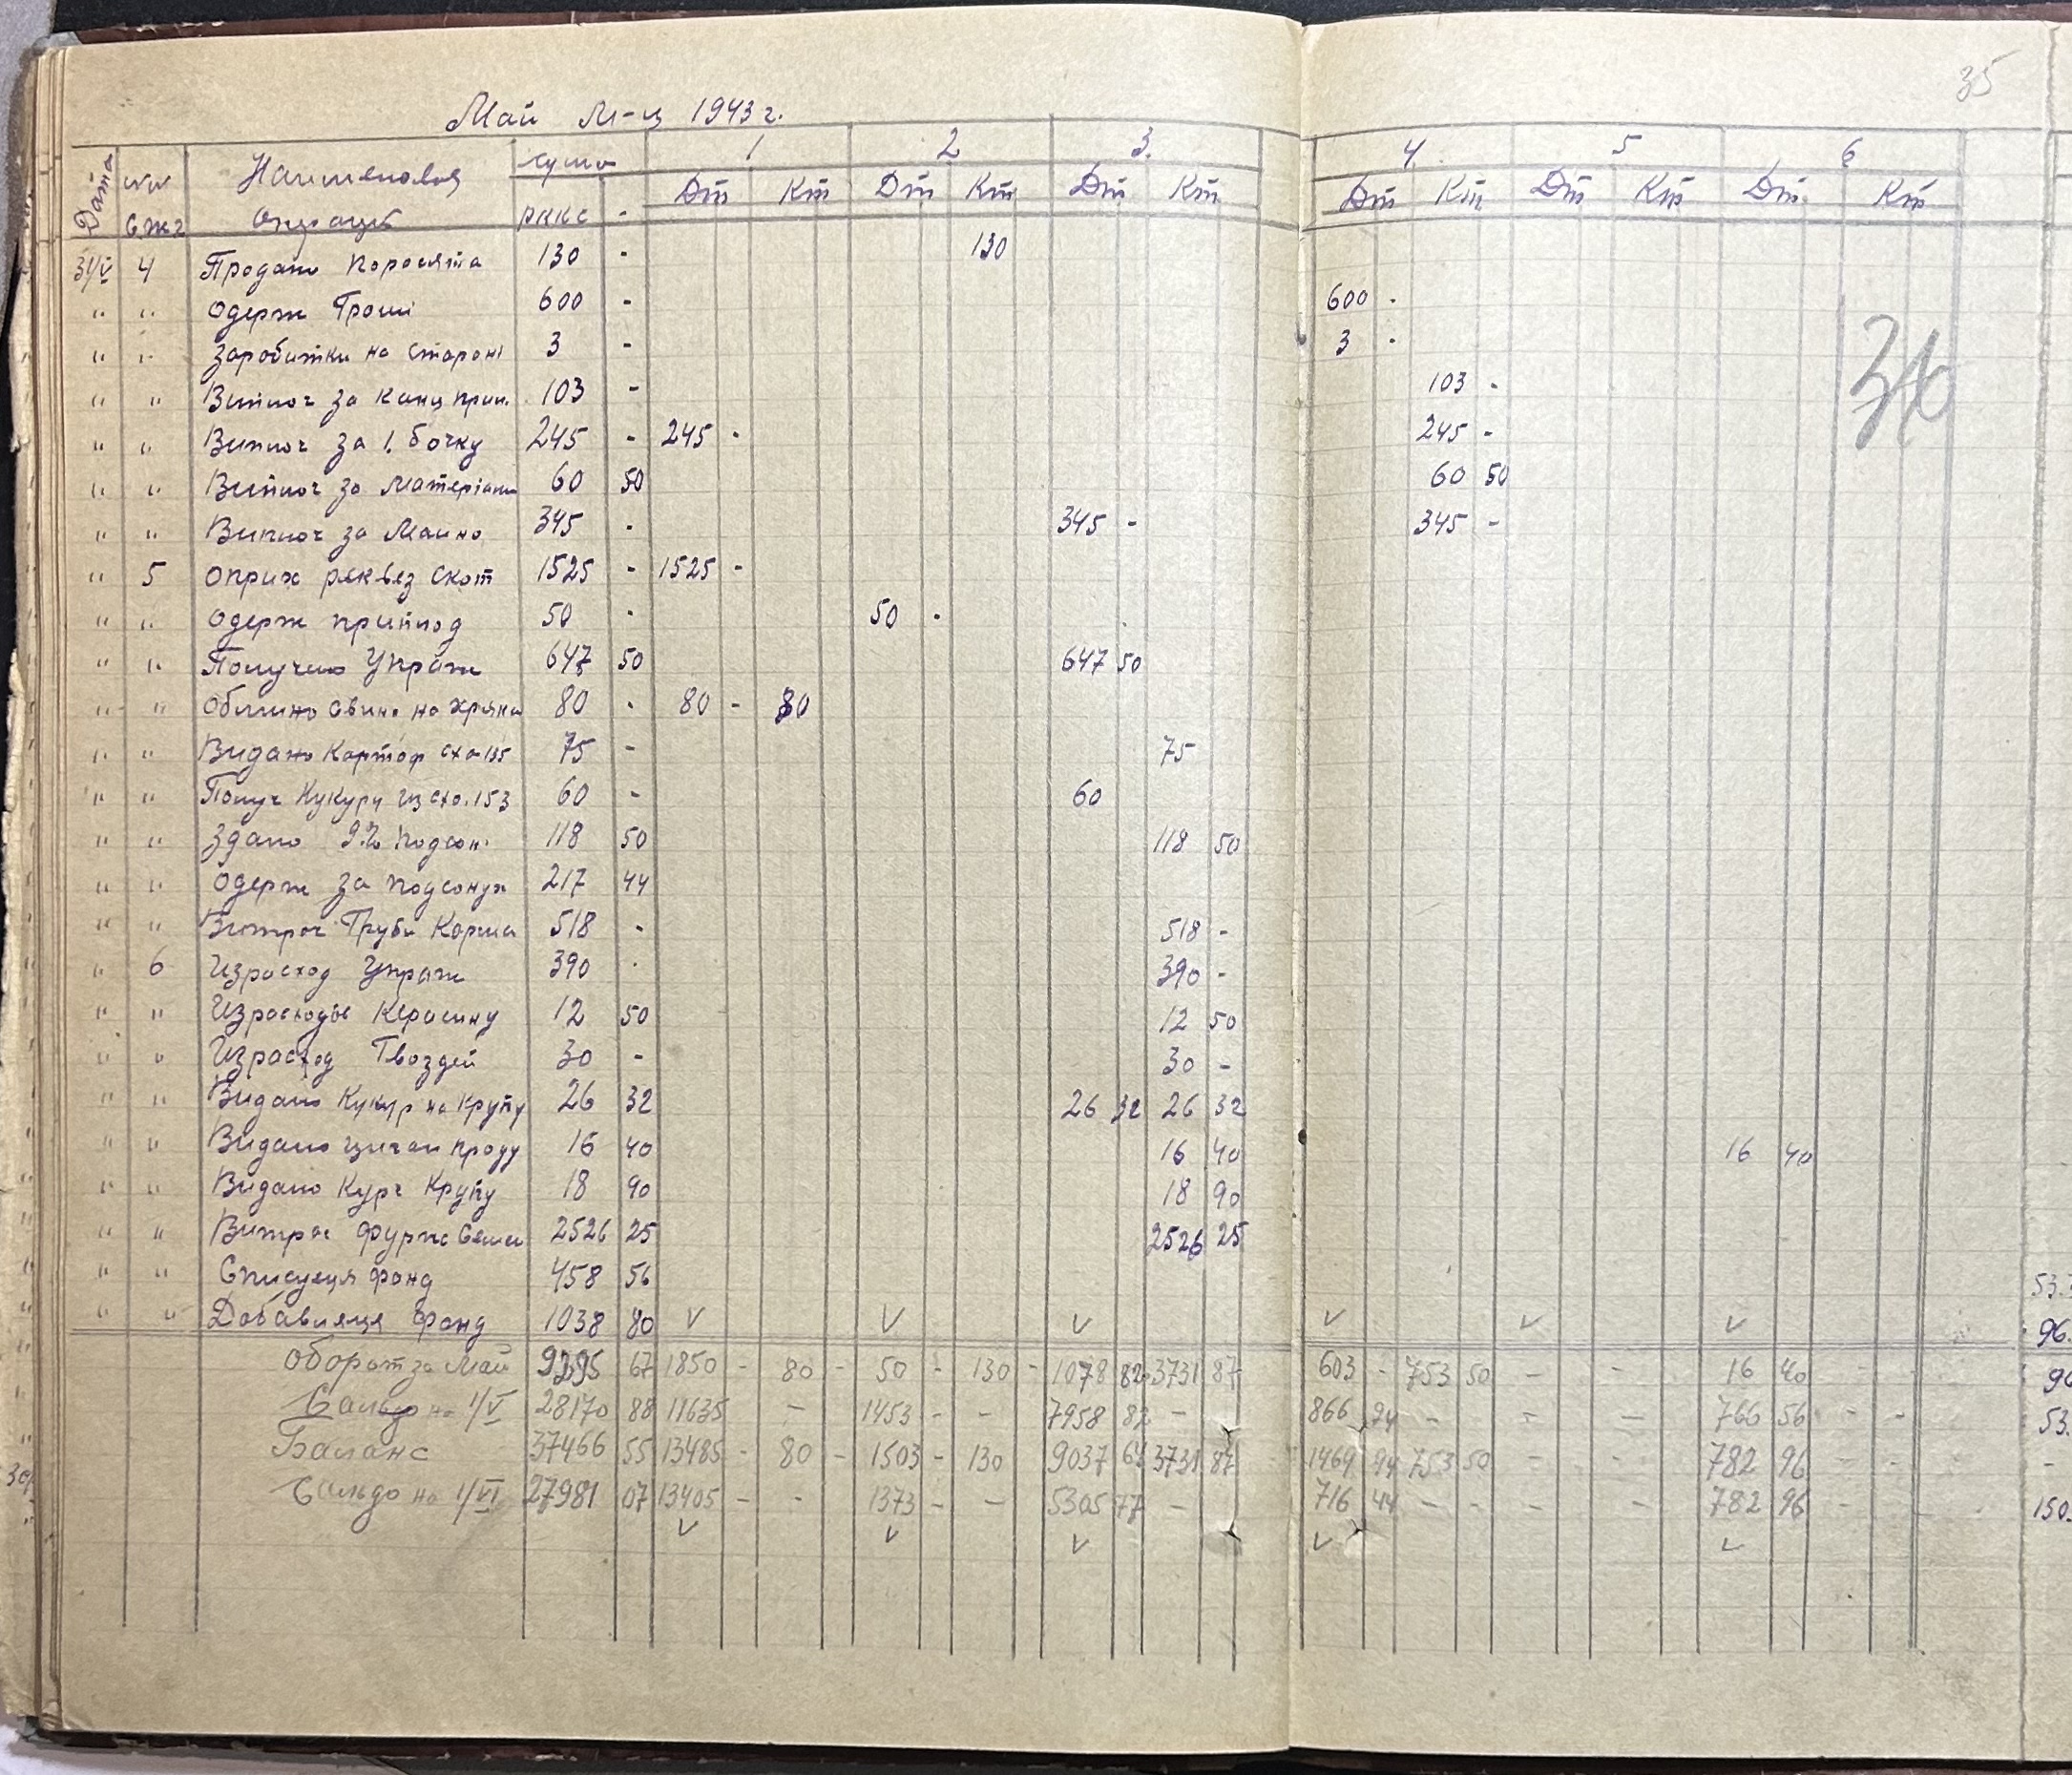 35
Май м-ц 1943 г.
Дата №№ Наименован сума 1 2 3. 4 5 6
операций рккс - Дт Кт Дт Кт Дт Кт Дт Кт Дт Кт Дт Кт
31/V 4 Продано поросята 130 - 130
" " Одерж Гроші 600 - 600 -
" " Заробитки на стороні 3 - 3 -
" " Виплоч за канц прин. 103 - 103 -
" " Виплоч за 1. бочку 245 - 245 - 245 -
" " Виплоч за Матеріали 60 50 60 50
" " Виплоч за Маино 345 - 345 - 345 -
" 5 Оприх реквез скот 1525 - 1525 -
" " Одерж приплод 50 - 50 -
" " Получено Упряж 647 50 647 50
" " Обмино свина на хряка 80 - 80 - 80
" " Видано Картоф 75 - 75
" " Получ Кукуру из схо. 153 60 - 60
" " Здано подсон 118 50 118 50
" " Одерж за подсонух 217 44
" " Витрач Груби Корма 518 - 518 -
" 6 Израсход Упряж 390 - 390 -
" " Израсходов Керасину 12 50 12 50
" " Израсход Гвоздей 30 - 30 -
" " Видано Кукур на крупу 26 32 26 32 26 32
" " Видано циган проду 16 40 16 40 16 40
" " Видано Курч Крупу 18 90 18 90
" " Витрач фураж 2526 25 2526 25
" " Списуеця фонд 458 56
" " Добавляеця фонд 1038 80 v v v v v v
Оборот за Май 9295 67 1850 - 80 - 50 - 130 - 1078 82 3731 87 603 - 753 50 - - 16 40 - -
Сальдо на 1/V 28170 88 11635 - 1453 - - 7958 82 - 866 94 - - - 766 56 - -
Баланс 37466 55 13485 - 80 - 1503 - 130 9037 64 3731 87 1469 94 753 50 - - 782 96 - -
Сальдо на 1/VI 27981 07 13405 - - 1373 - - 5305 77 - 716 44 - - - - 782 96 -
v v v v v